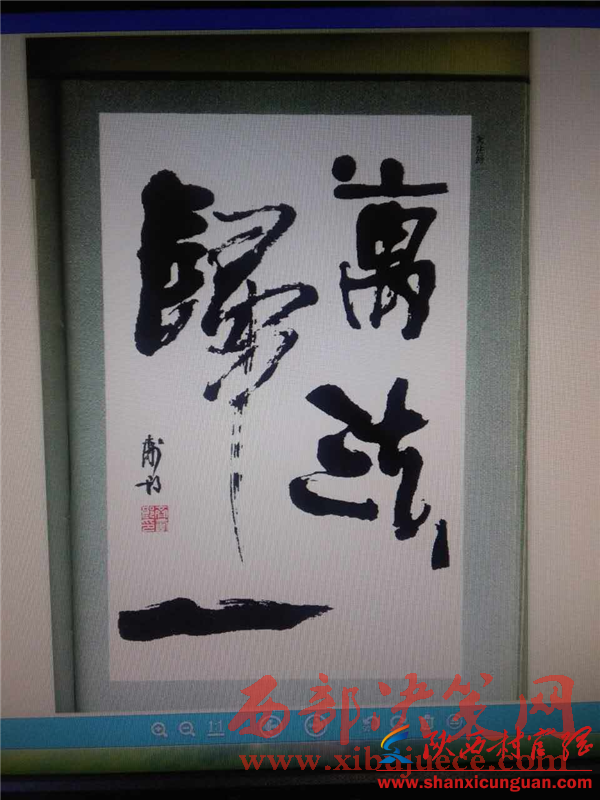 萬法
歸一
1:1
西部决策网
www.xibujuece.com
陕西村官网
www.shanxicunguan.com